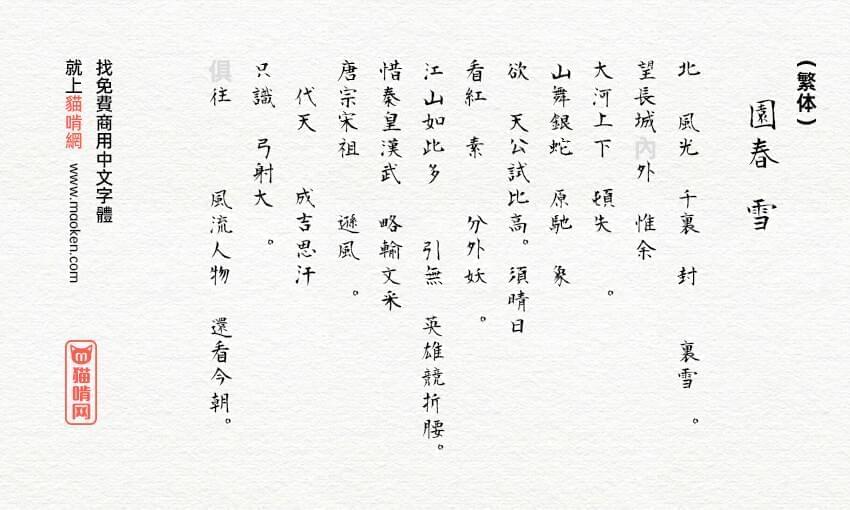 (繁体)
園春 雪
北 風光 千裏 封 裏雪 。
望長城內外 惟余
大河上下 頓失 。
山舞銀蛇 原馳 象
欲 天公試比高。須晴日
看紅 素 分外妖 。
江山如此多 引無 英雄競折腰。
惜秦皇漢武 略輸文采
唐宗宋祖 遜風 。
代天 成吉思汗
只識 弓射大 。
俱往 風流人物 還看今朝。
找免費商用中文字體
就上貓啃網 www.maoken.com
貓啃网